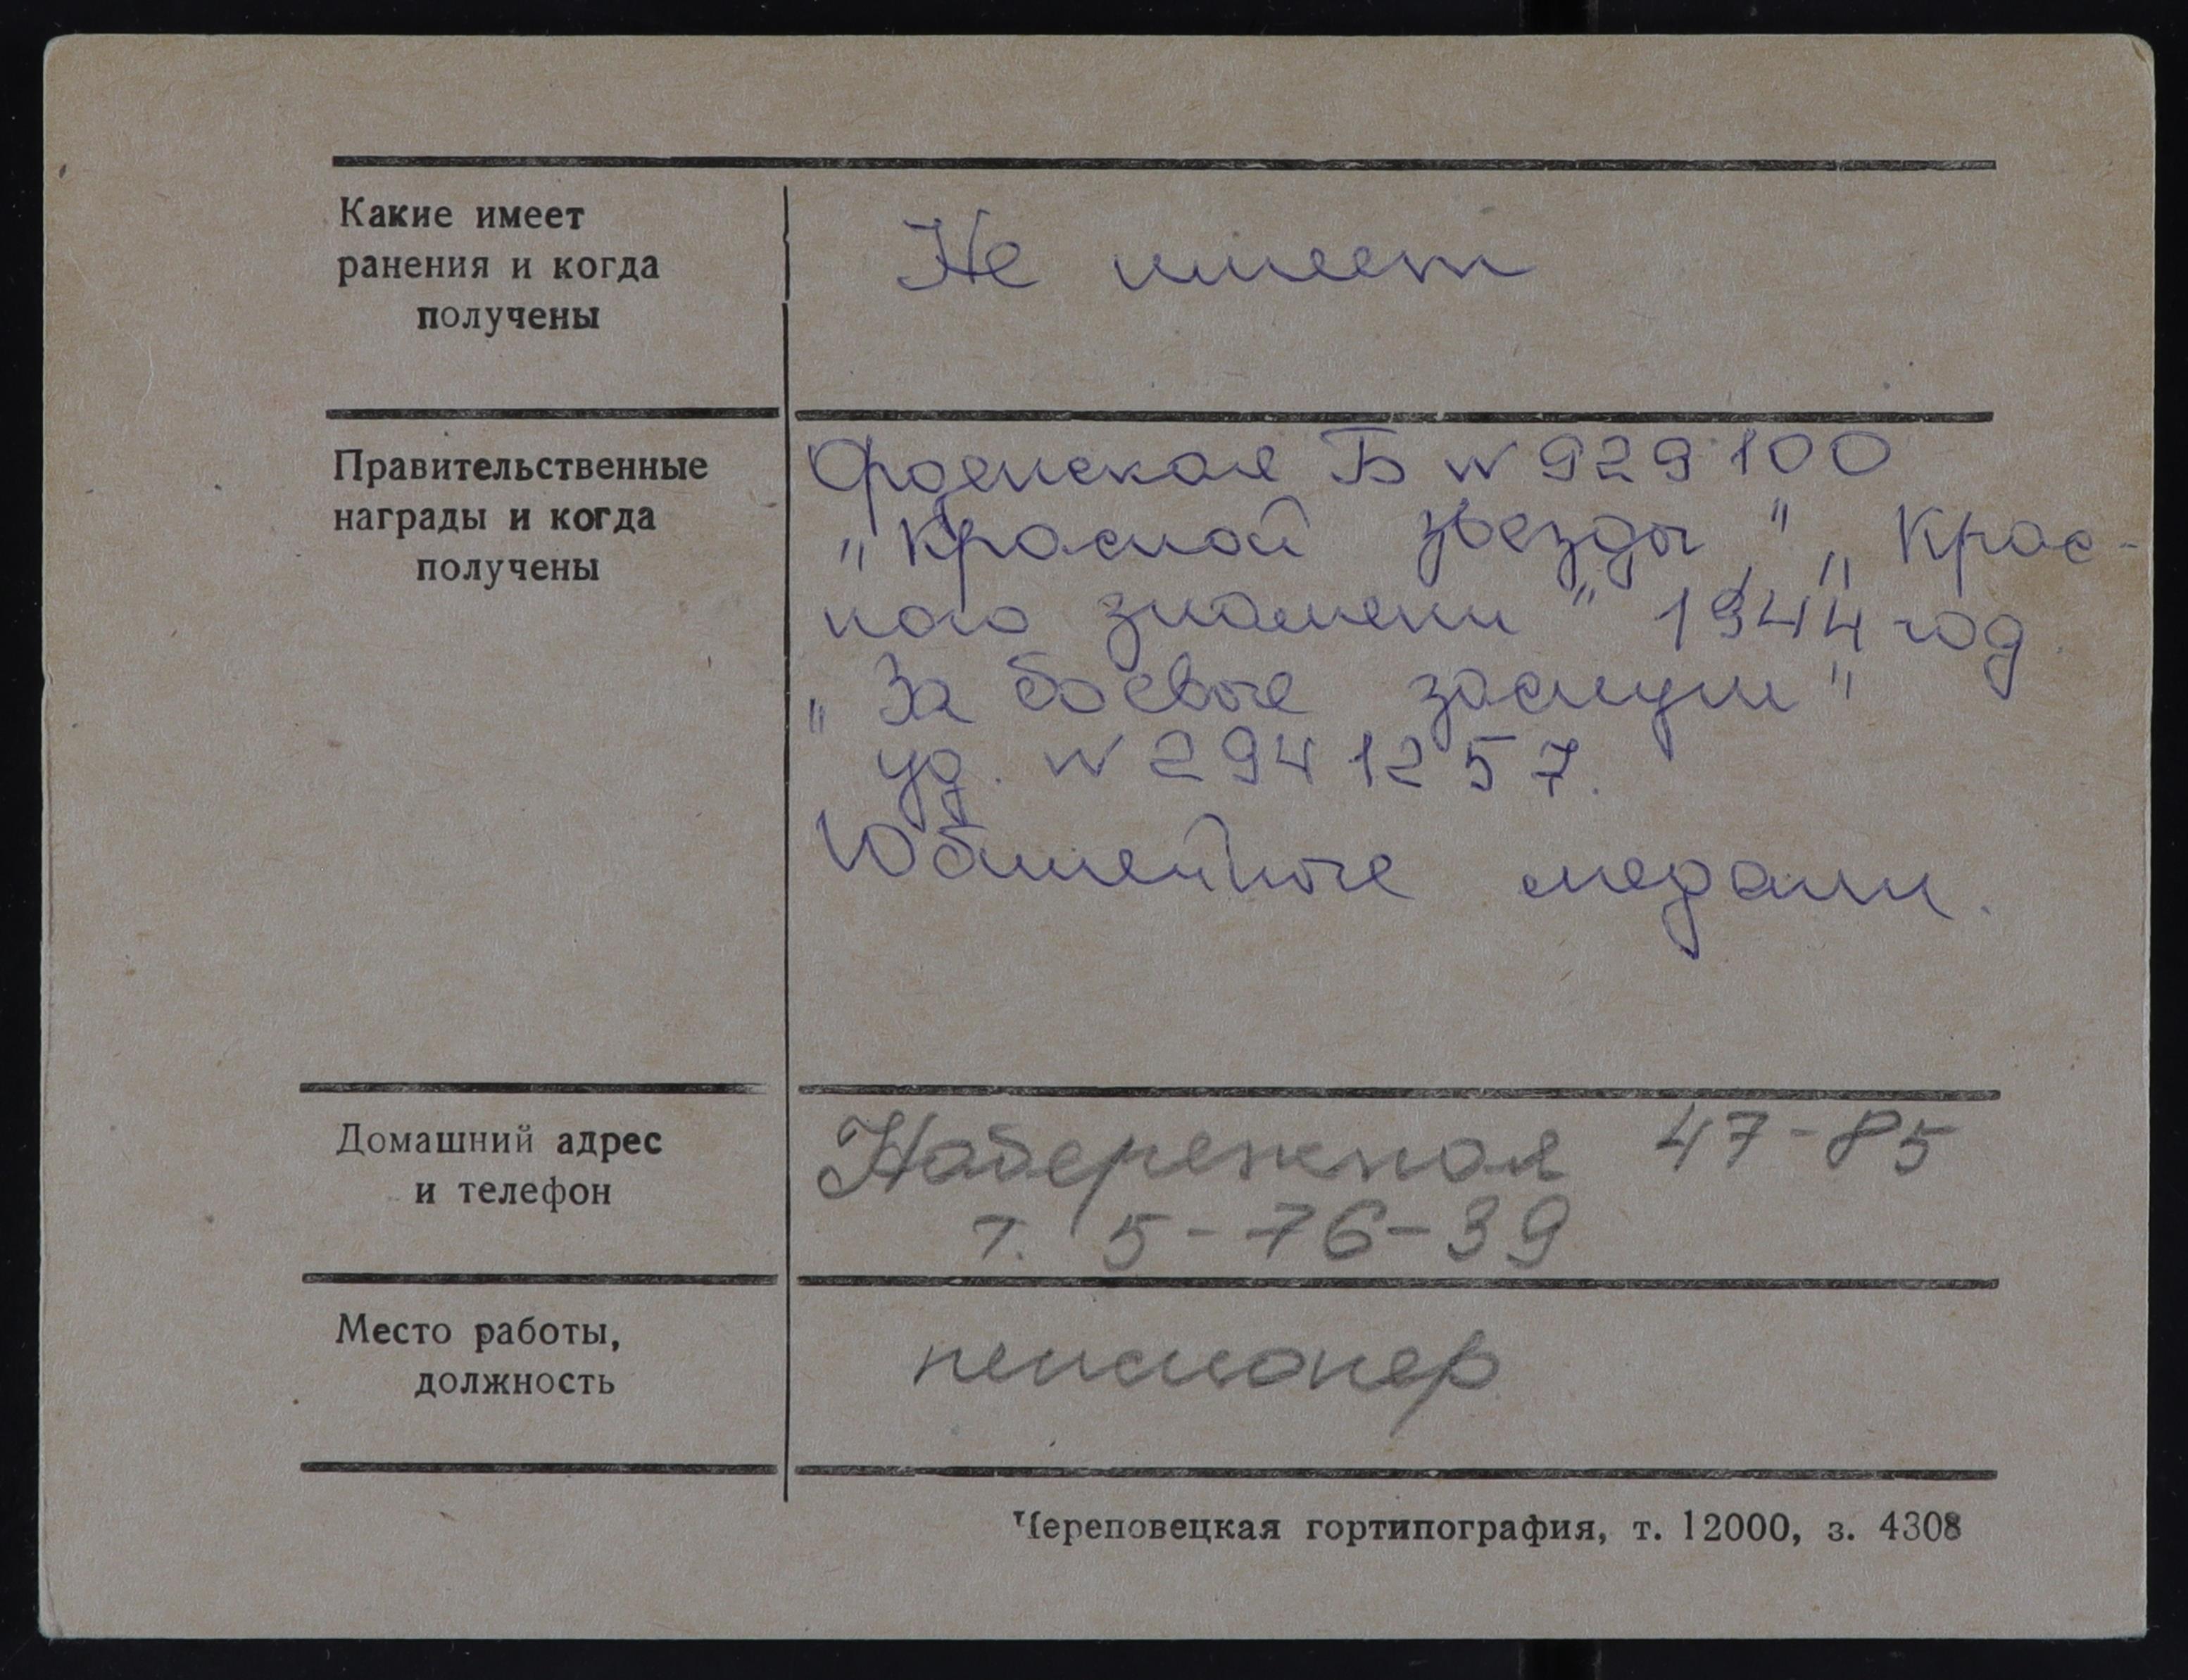 Какие имеет
ранения и когда
получены
Не имеет
Правительственные
награды и когда
получены
Орденская Б № 929100
„Красной звезды" „Крас-
ного знамени" 1944 год.
„За боевые заслуги"
уд. № 2941257.
Юбилейные медали.
Домашний адрес
и телефон
Набережная 47-85
т. 5-76-39
Место работы,
должность
пенсионер
Череповецкая гортипография, т. 12000, з. 4308